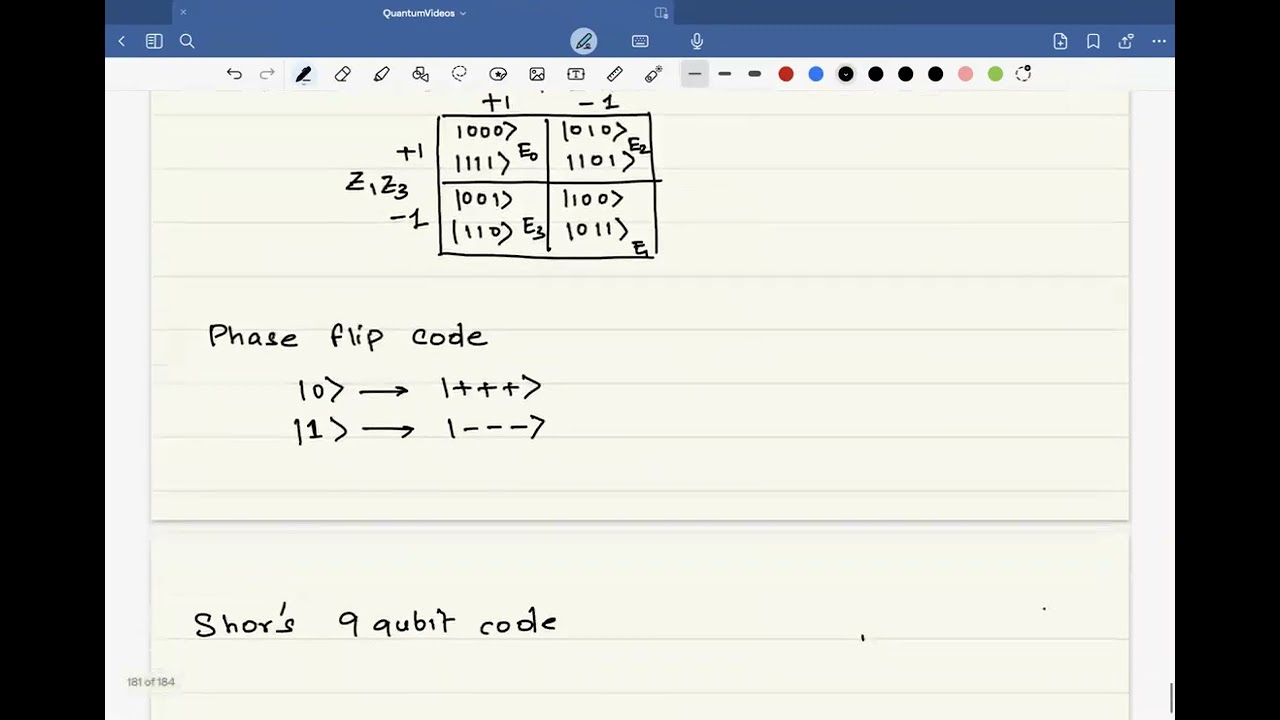 QuantumVideos
+1 -1
|000> |010>
+1 |111> E₀ |101> E₂
Z₁Z₃ |001> |100>
-1 |110> E₃ |011> E₁
Phase flip code
|0> → |+++>
|1> → |--->
Shor's 9 qubit code
181 of 184